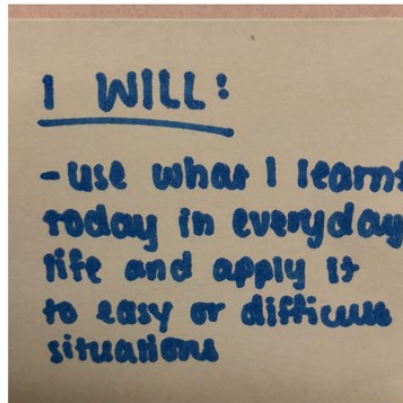 I WILL:
- use what I learnt
today in everyday
life and apply it
to easy or difficult
situations